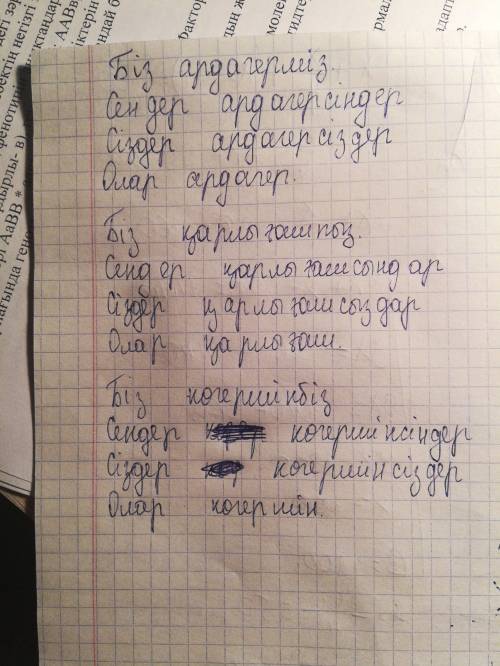 Біз ардагерміз.
Сендер ардагерсіндер
Сіздер ардагерсіздер
Олар ардагер.
Біз қарлығашпыз.
Сендер қарлығашсындар
Сіздер қарлығашсыздар
Олар қарлығаш.
Біз көгершінбіз
Сендер көгершінсіндер
Сіздер көгершінсіздер
Олар көгершін.